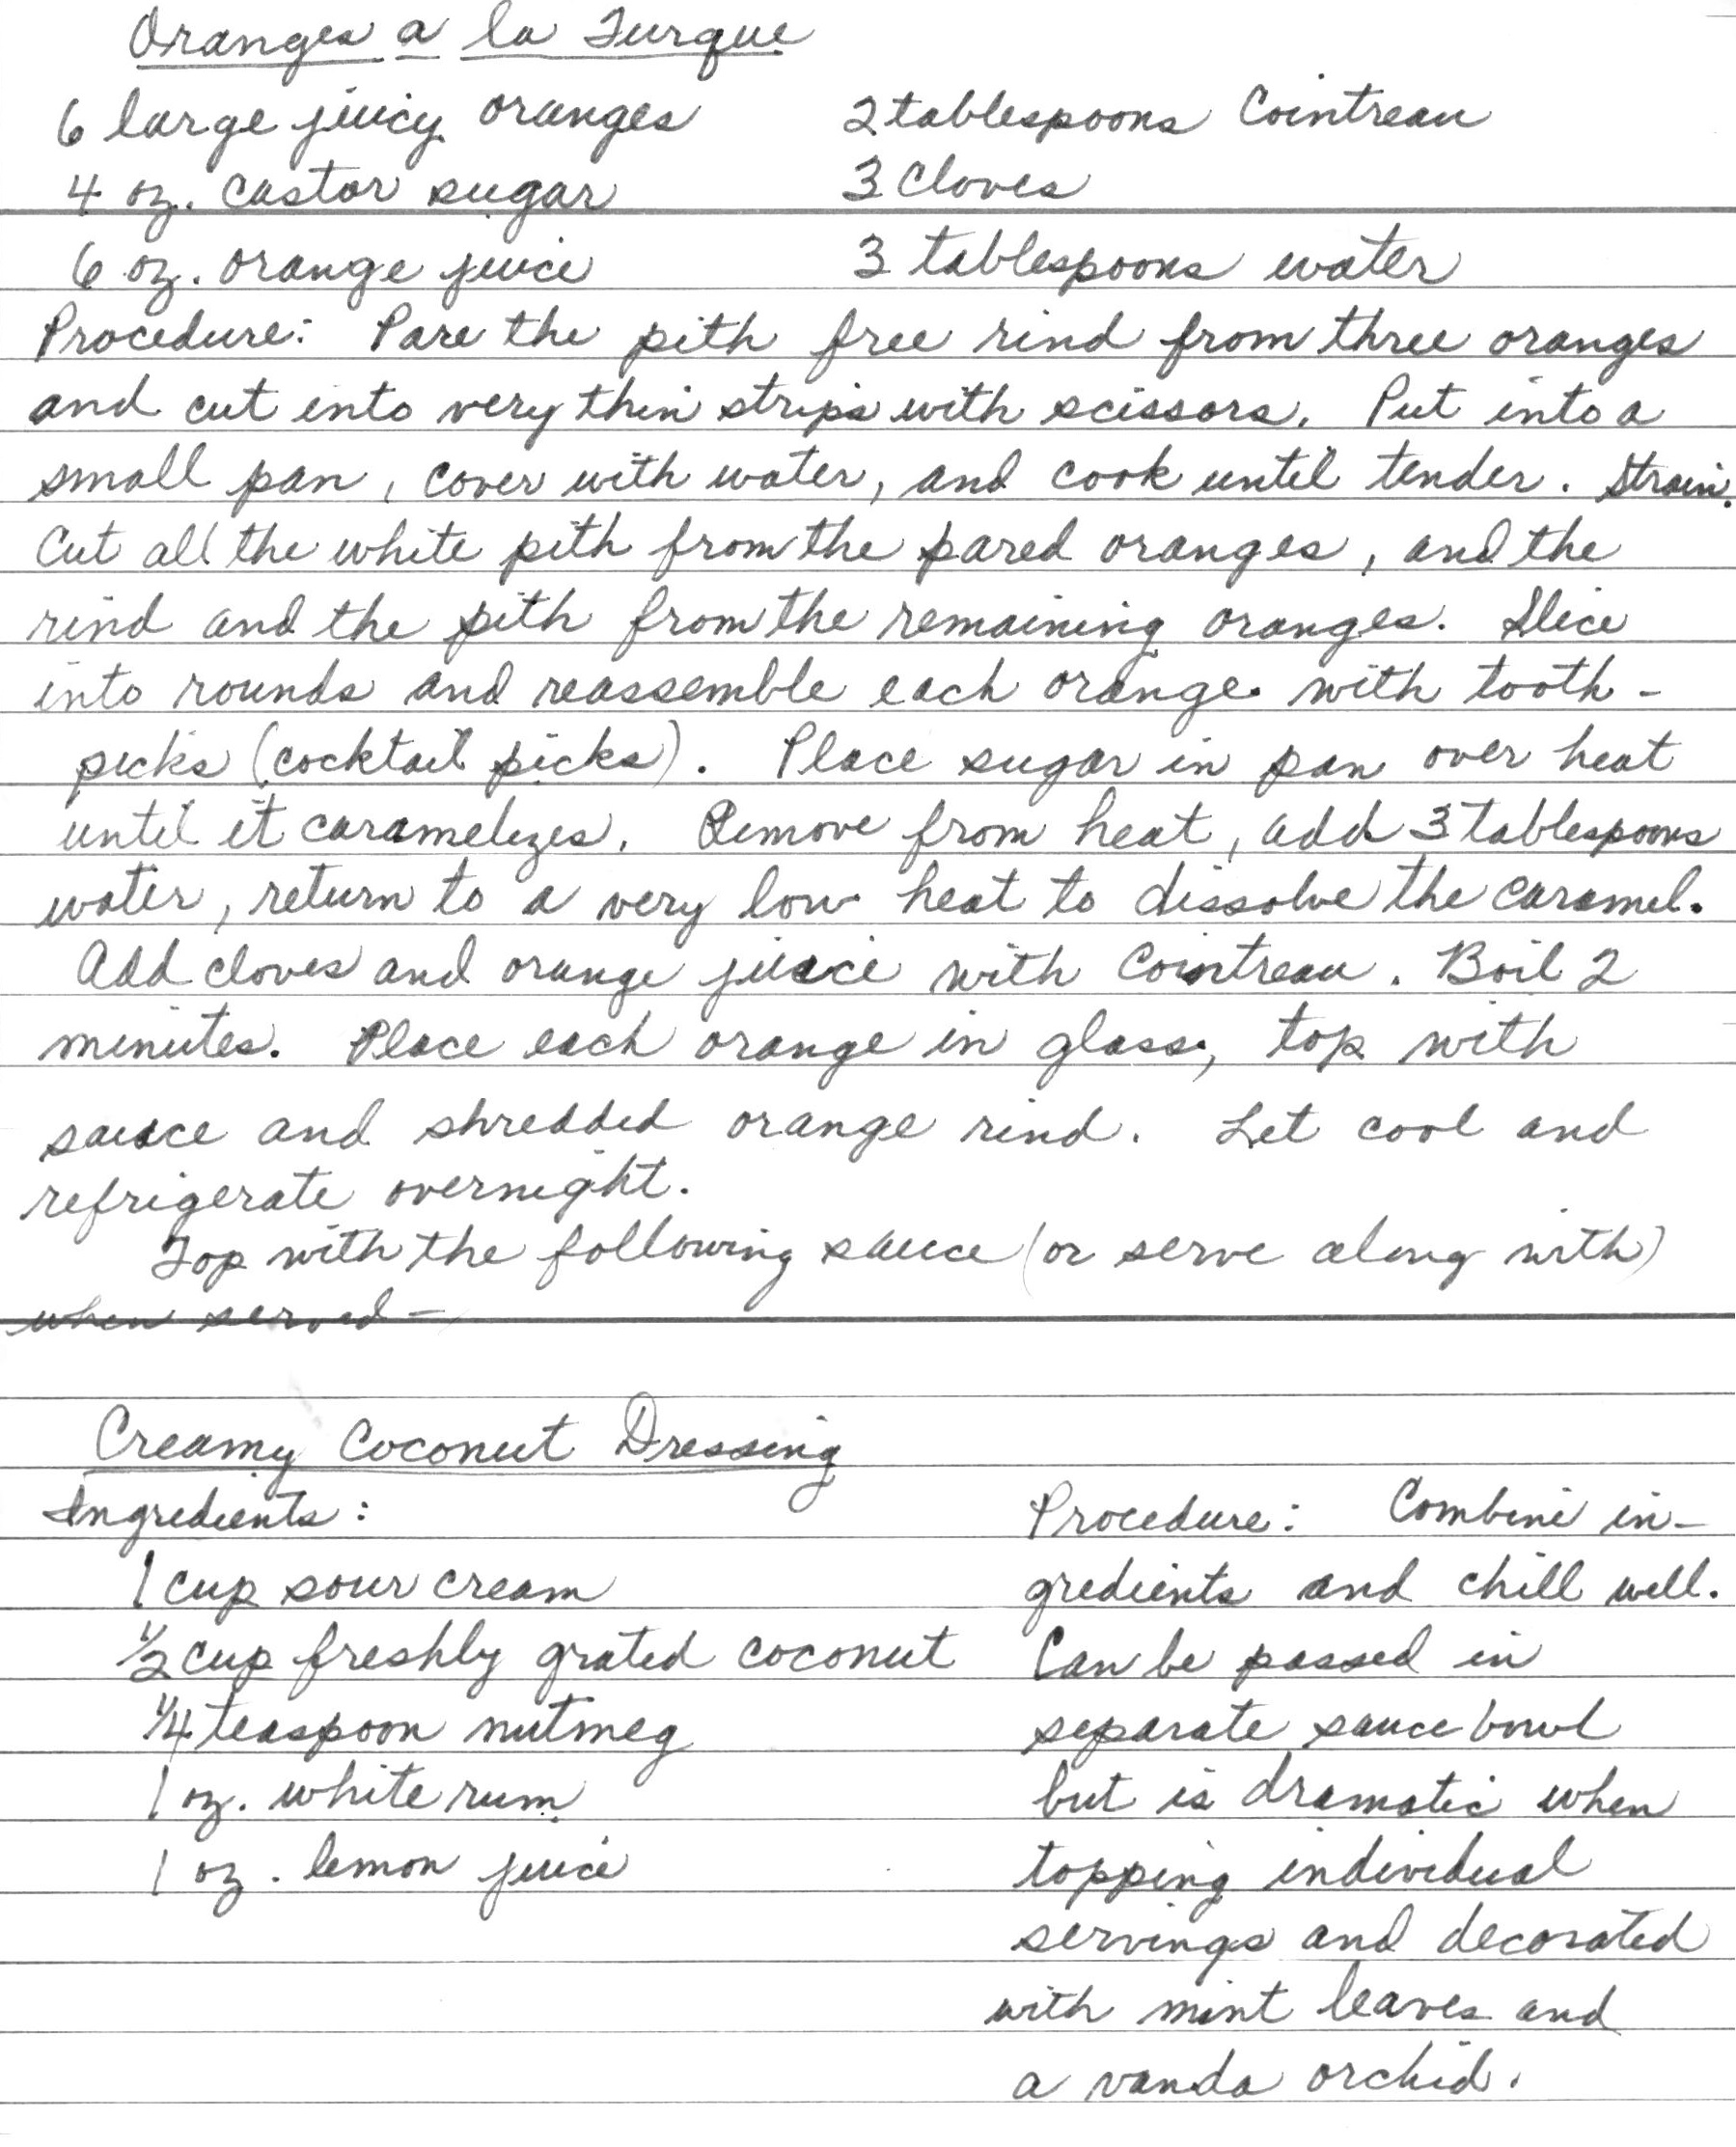 Oranges a la Turque
6 large juicy oranges 2 tablespoons Cointreau
4 oz. castor sugar 3 cloves
6 oz. orange juice 3 tablespoons water
Procedure: Pare the pith free rind from three oranges
and cut into very thin strips with scissors. Put into a
small pan, cover with water, and cook until tender. Strain.
Cut all the white pith from the pared oranges, and the
rind and the pith from the remaining oranges. Slice
into rounds and reassemble each orange with tooth-
picks (cocktail picks). Place sugar in pan over heat
until it caramelizes. Remove from heat, add 3 tablespoons
water, return to a very low heat to dissolve the caramel.
Add cloves and orange juice with Cointreau. Boil 2
minutes. Place each orange in glass, top with
sauce and shredded orange rind. Let cool and
refrigerate overnight.
Top with the following sauce (or serve along with)
when served -
Creamy Coconut Dressing
Ingredients:
1 cup sour cream
1/2 cup freshly grated coconut
1/4 teaspoon nutmeg
1 oz. white rum
1 oz. lemon juice
Procedure: Combine in-
gredients and chill well.
Can be passed in
separate sauce bowl
but is dramatic when
topping individual
servings and decorated
with mint leaves and
a vanda orchid.